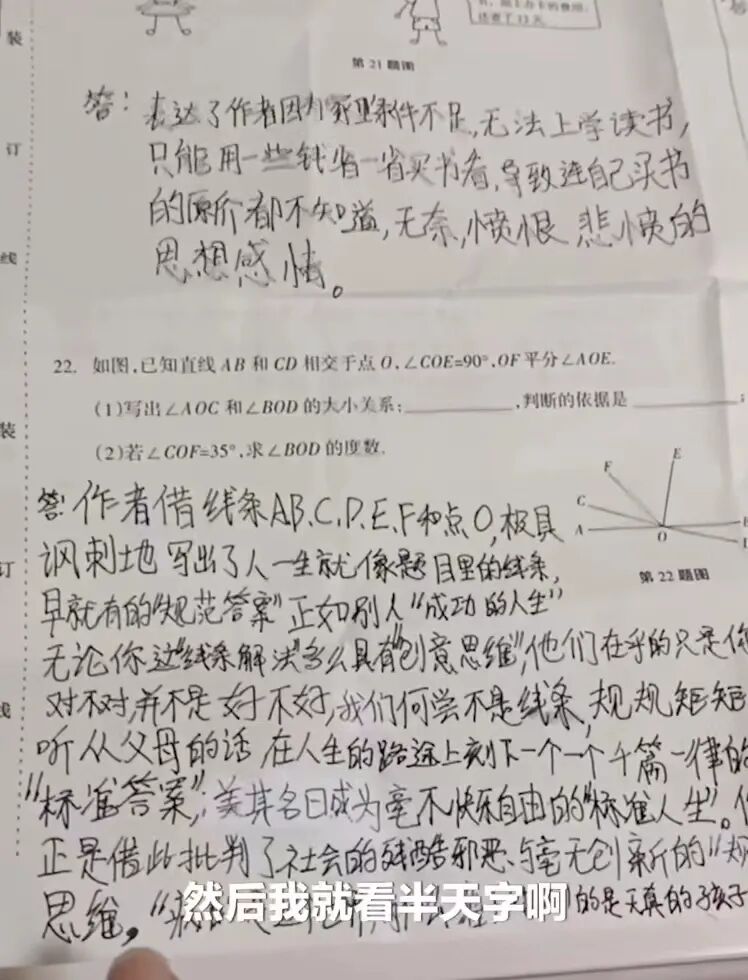 装
订
线
装
订
线
还省了13元
第21题图
答：表达了作者因为家里条件不足,无法上学读书,
只能用一些钱省一省买书看,导致连自己买书
的原价都不知道,无奈,愤恨,悲愤的
思想感情。
22. 如图,已知直线AB和CD相交于点O,∠COE=90°,OF平分∠AOE.
(1)写出∠AOC和∠BOD的大小关系: ,判断的依据是 ;
(2)若∠COF=35°,求∠BOD的度数.
F
E
C
A
O
第22题图
答:作者借线条AB、C、D、E、F和点O,极具
讽刺地写出了人一生就像题目里的线条,
早就有的“规范答案”正如别人“成功的人生”
无论你这“线条解法”多么具有“创意思维”,他们在乎的只是你
对不对,并不是好不好,我们何尝不是线条,规规矩矩
听从父母的话,在人生的路途上刻下一个一个千篇一律的
“标准答案”;美其名曰成为毫不快乐自由的“标准人生”。
正是借此批判了社会的残酷邪恶与毫无创新的“规
思维。“
的是天真的孩子
然后我就看半天字啊